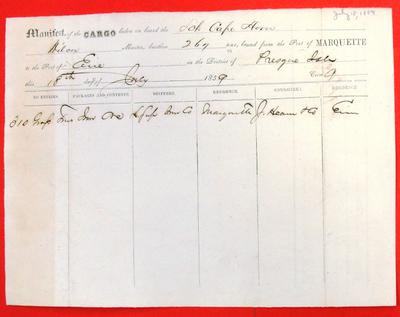 July 18, 1859
Manifest of the CARGO laden on board the Sch Cape Horn
Wilson Master, burthen 267 tons, bound from the Port of MARQUETTE
to the Port of Erie in the District of Presque Isle
this 18th day of July 1859
NO ENTRIES. PACKAGES AND CONTENTS. SHIPPERS. RESIDENCE. CONSIGNEES. RESIDENCE
310 Tons Iron Ore Iron Co Marquette J. Hearn & Co Erie